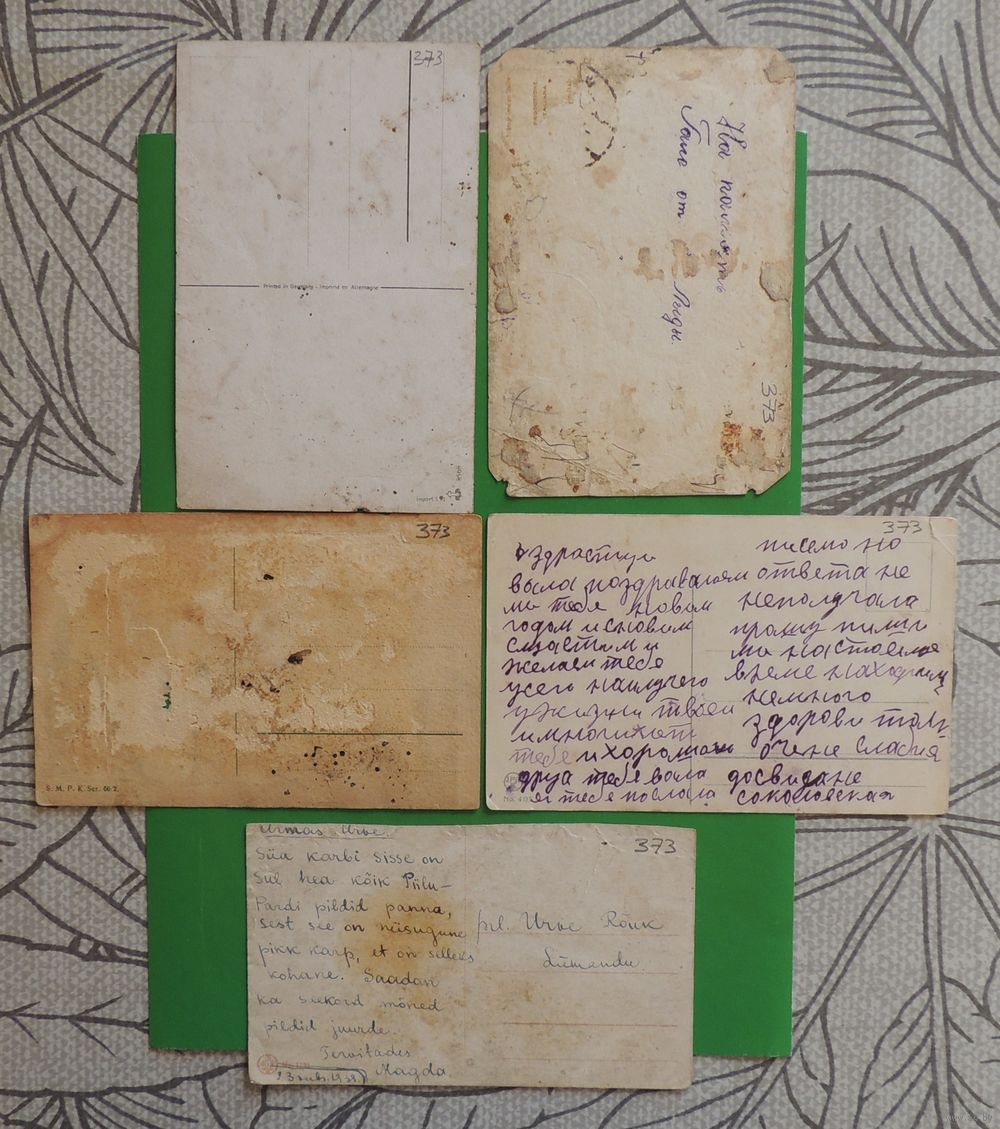 373
Printed in Germany - Imprimé en Allemagne
Import
На память
Гане от Лиды.
373
373
S. M. P. K. Ser. 66/2.
373
здраствуи
вала поздравляем
ми тебе новом
годом и сновим
сщастими
желаем тебе
усего наилучего
у жизни твоеи
имногихлет
тебе и хорошаи
друа тебе вала
я тебе послала
писмо но
ответа не
неполучала
прошу пиши
ми настояще
време находимц
немного
здорови толк
очене слабия
досвидане
соколовская
373
Armas Urve.
Süa karbi sisse on
Sul hea kõik Piilu-
Pardi pildid panna,
sest see on niisugune
pikk karp, et on selleks
kohane. Saadan
ka seekord mõned
pildid juurde.
Tervitades
Magda.
prl. Urve Rõuk
Lümandu